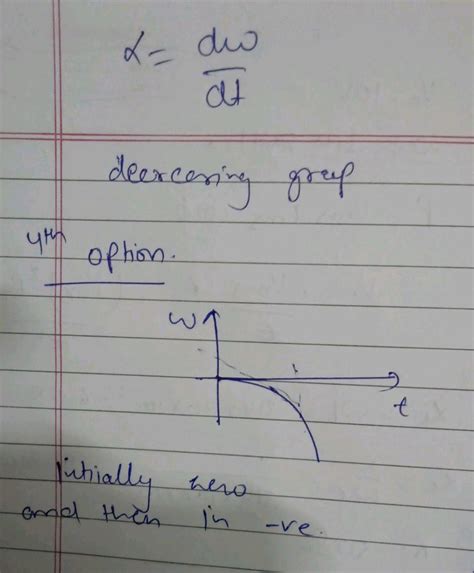 α = dω/dt
decreasing grap
4th option.
ω
t
Initially zero
and then in -ve.